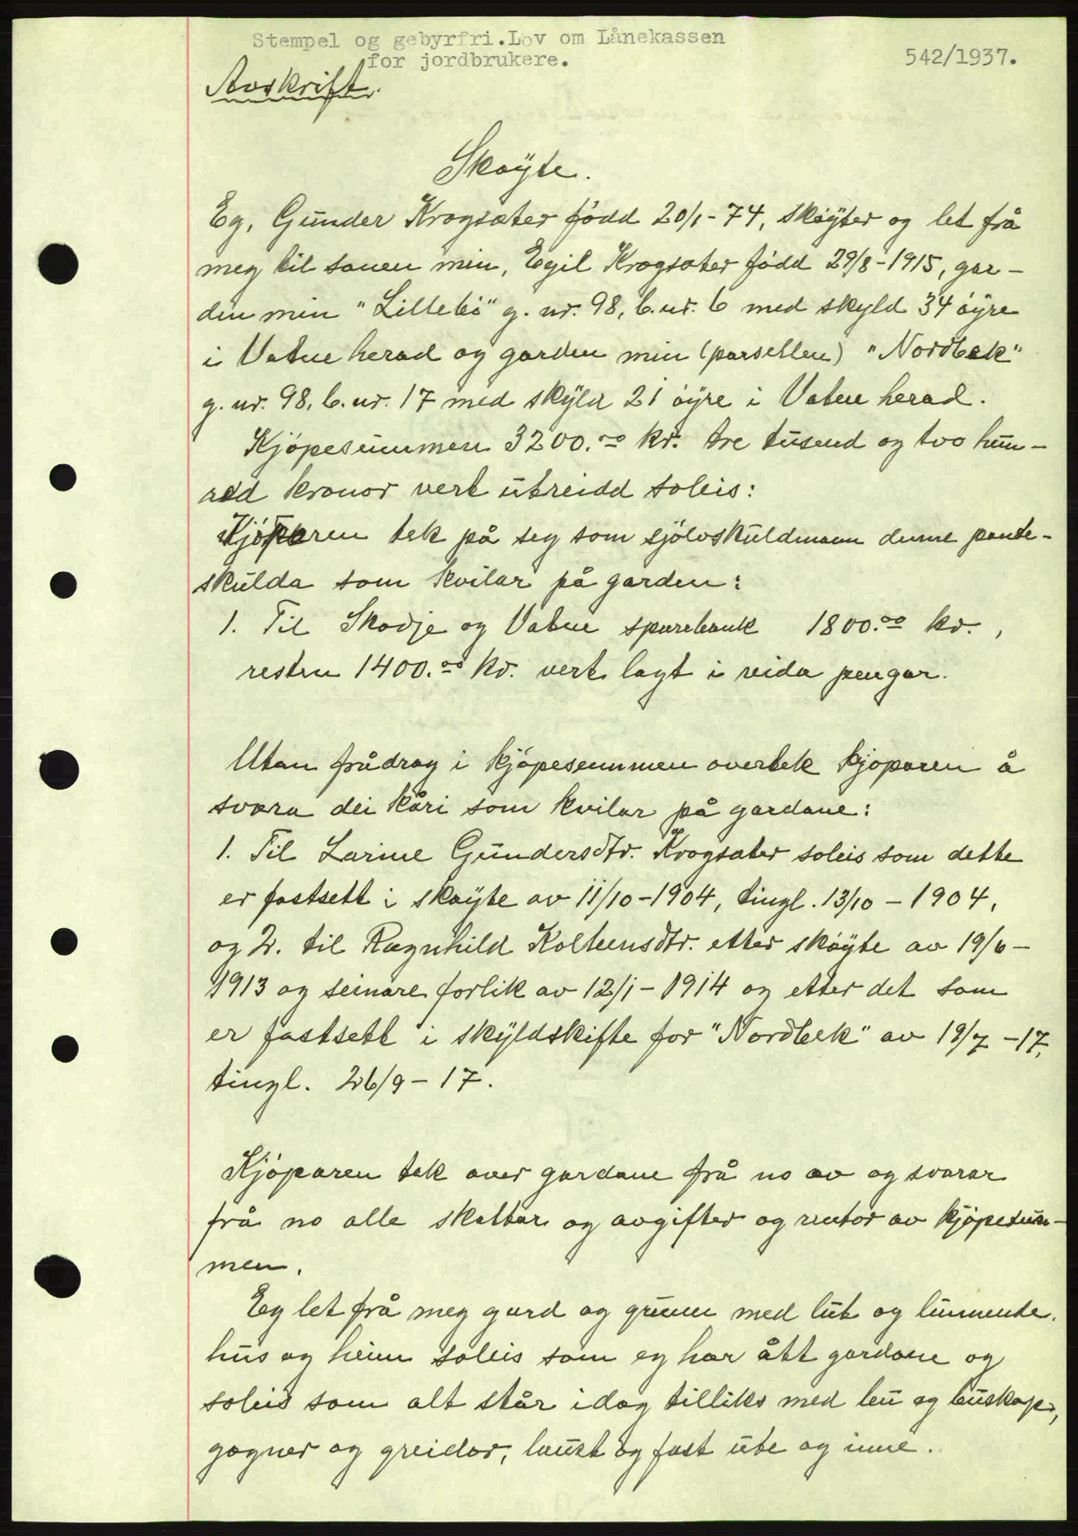 Stempel og gebyrfri.Lov om Lånekassen
for jordbrukere.
542/1937.
Avskrift.
Skøyte.
Eg, Gunder Krogsæter fødd 20/1-74, skøyter og let frå
meg til sonen min, Egil Krogsæter fødd 29/8-1915, gar-
den min "Lillebø" g. nr. 98, b. nr. 6 med skyld 34 øyre
i Vatne herad og garden min (parsellen) "Nordbek"
g. nr. 98, b. nr. 17 med skyld 21 øyre i Vatne herad.
Kjøpesummen 3200.00 kr. tre tusend og tvo hun-
red kronor vert utreidd soleis:
Kjøparen tek på seg som sjølvskuldmann denne pante-
skulda som kvilar på garden:
1. Til Skodje og Vatne sparebank 1800.00 kr.,
resten 1400.00 kr. vert lagt i reida pengar.
Utan frådrag i kjøpesummen overtek kjøparen å
svara dei kåri som kvilar på gardane:
1. Til Larine Gundersdtr. Krogsæter soleis som dette
er fastsett i skøyte av 11/10-1904, tingl. 13/10-1904,
og 2. til Ragnhild Kolbensdtr. etter skøyte av 19/6-
1913 og seinare forlik av 12/1-1914 og etter det som
er fastsett i skyldskifte for "Nordbek" av 19/7-17,
tingl. 26/9-17.
Kjøparen tek over gardane frå no av og svarar
frå no alle skattar og avgifter og rentor av kjøpesum-
men.
Eg let frå meg gard og grunn med lut og lunnende.
hus og heim soleis som eg har ått gardane og
soleis som alt står idag tilliks med bu og buskap,
gogner og greidor, laust og fast ute og inne.